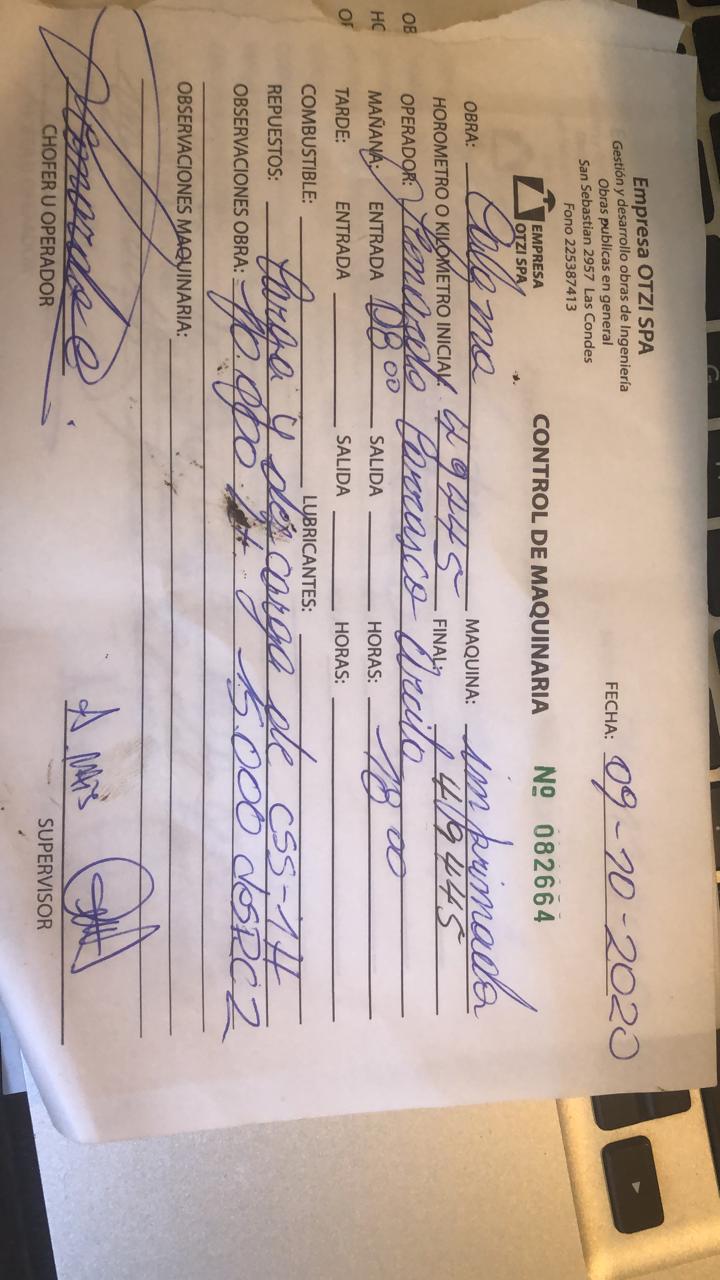 Empresa OTZI SPA
Gestión y desarrollo obras de Ingeniería
Obras publicas en general
San Sebastian 2957 Las Condes
Fono 225387413
FECHA: 09-10-2020
EMPRESA
OTZI SPA
CONTROL DE MAQUINARIA Nº 082664
OBRA: MAQUINA: imprimador
HOROMETRO O KILOMETRO INICIAL: 419445 FINAL: 419445
OPERADOR: Leonardo Carrasco
MAÑANA: ENTRADA 08 00 SALIDA HORAS: 18 00
TARDE: ENTRADA SALIDA HORAS:
COMBUSTIBLE: LUBRICANTES:
REPUESTOS: Carga y descarga de CSS-1H
OBSERVACIONES OBRA: 10.000 Lt y 15.000
OBSERVACIONES MAQUINARIA:
Leonardo C
A. 
CHOFER U OPERADOR SUPERVISOR
OB
HO